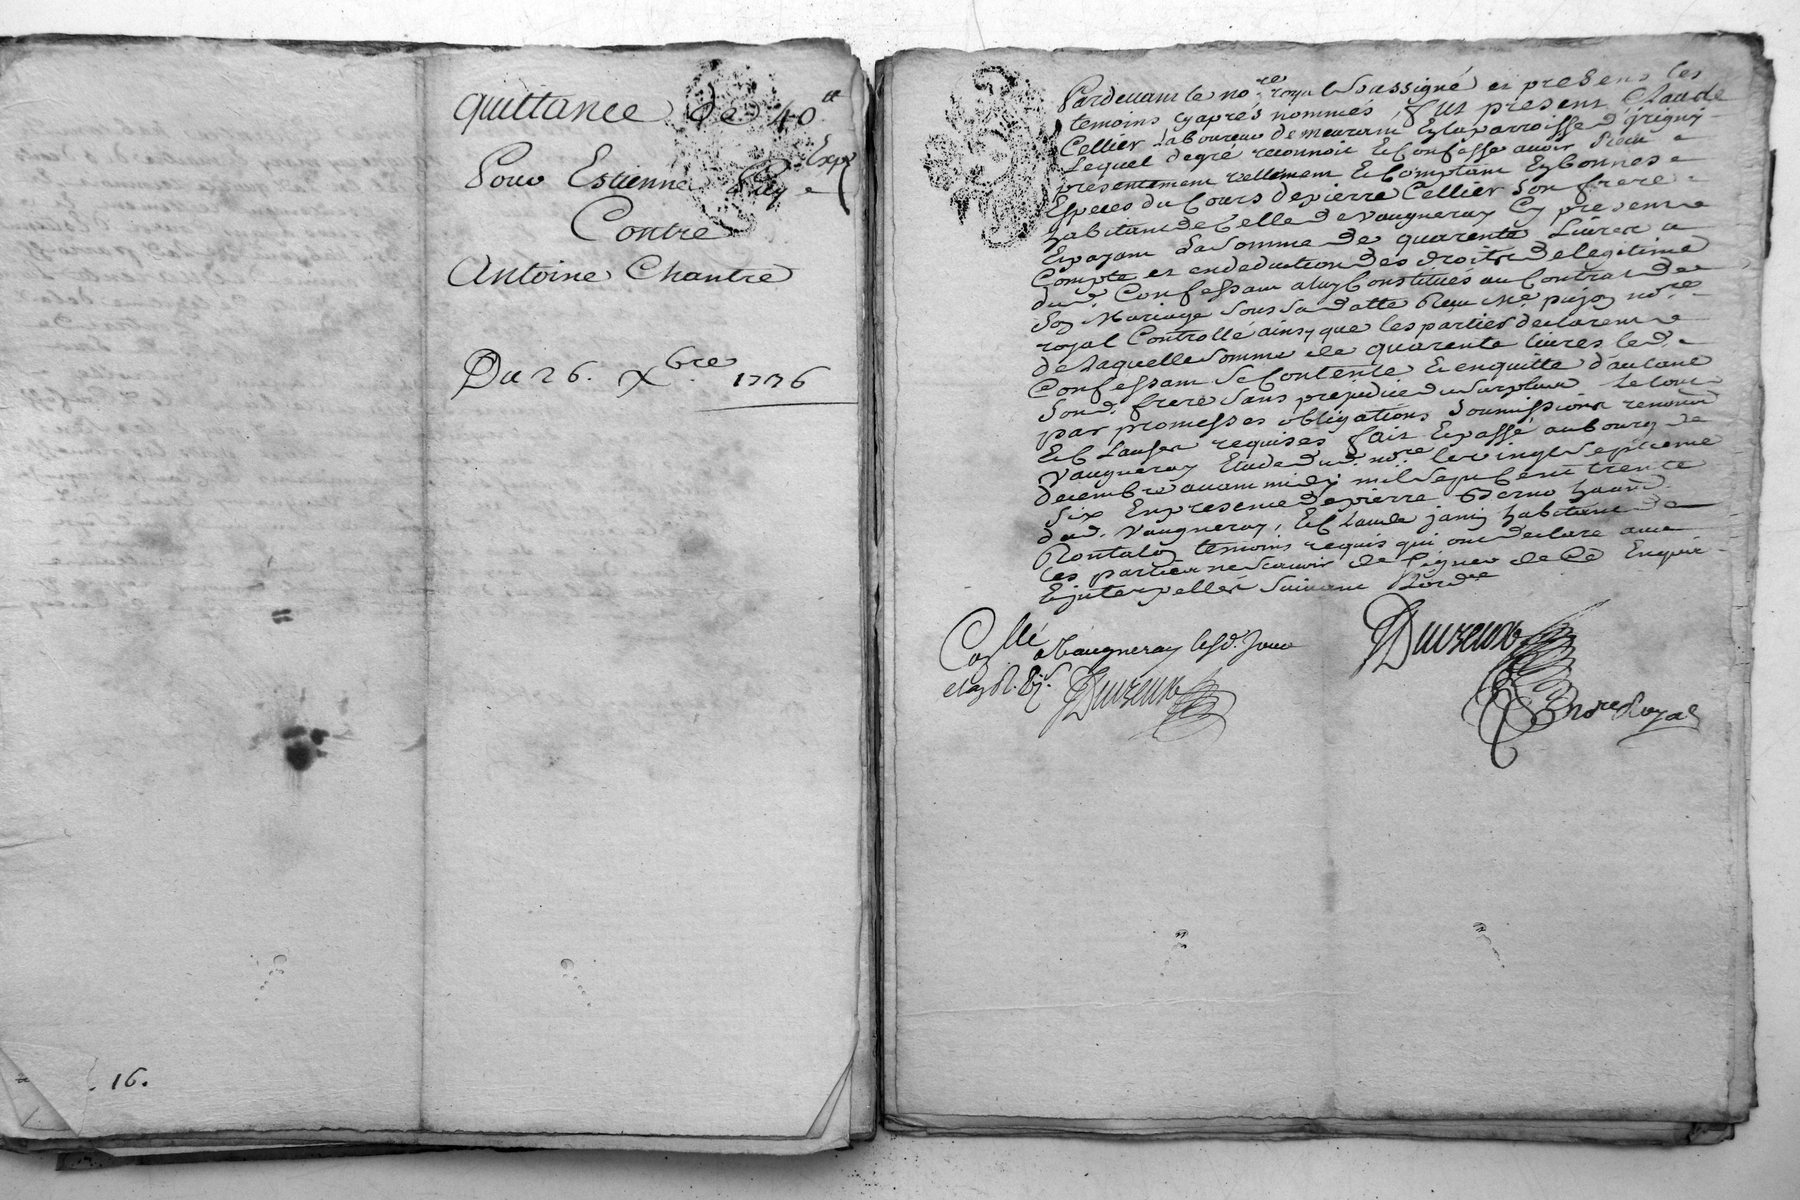 quittance de 40 tt
Expé
Pour Estienne Puy
Contre
Antoine Chantre
Du 26. Xbre 1736
. 16.
Pardevant le nore royal soussigné et presens les
temoins cyaprés nommés, fut present Claude
Cellier Laboureur demeurant en la parroisse d'grigny
Lequel de gré reconnoit et Confesse avoir Receu
presentement reellement et Comptant en bonnes
Especes du Cours de pierre Cellier Son frere
habitant de Celle de Vaugneray Cy present
Et payant La Somme de quarente Livres a
Compte et en deduction des droits de legitime
dud. Confessant a luy Constitués au Contrat de
Son Mariage Sous Sa datte Receu Me pujoz nore
royal Controllé ainsy que les parties declarent
de Laquelle Somme de quarente livres led.
Confessant Se Contente et en quitte d'autant
Sond. frere Sans prejudice du Surplus Le tout
par promesses obligations Soumissions renonon
et Clauses requises fait et passé au bourg de
Vaugneray Etude dud. nore le vingt Septieme
decembre avant midy mil Sept Cent trente
Six En presence de pierre habnt
dud. Vaugneray, et Claude janin habitant de
Rontalon temoins requis qui ont declaré avec
les parties ne Scavoir Signer de Ce Enquis
Et interpellés Suivant Lordce
Conllé a Vaugneray lesd. Jour
nore Royal